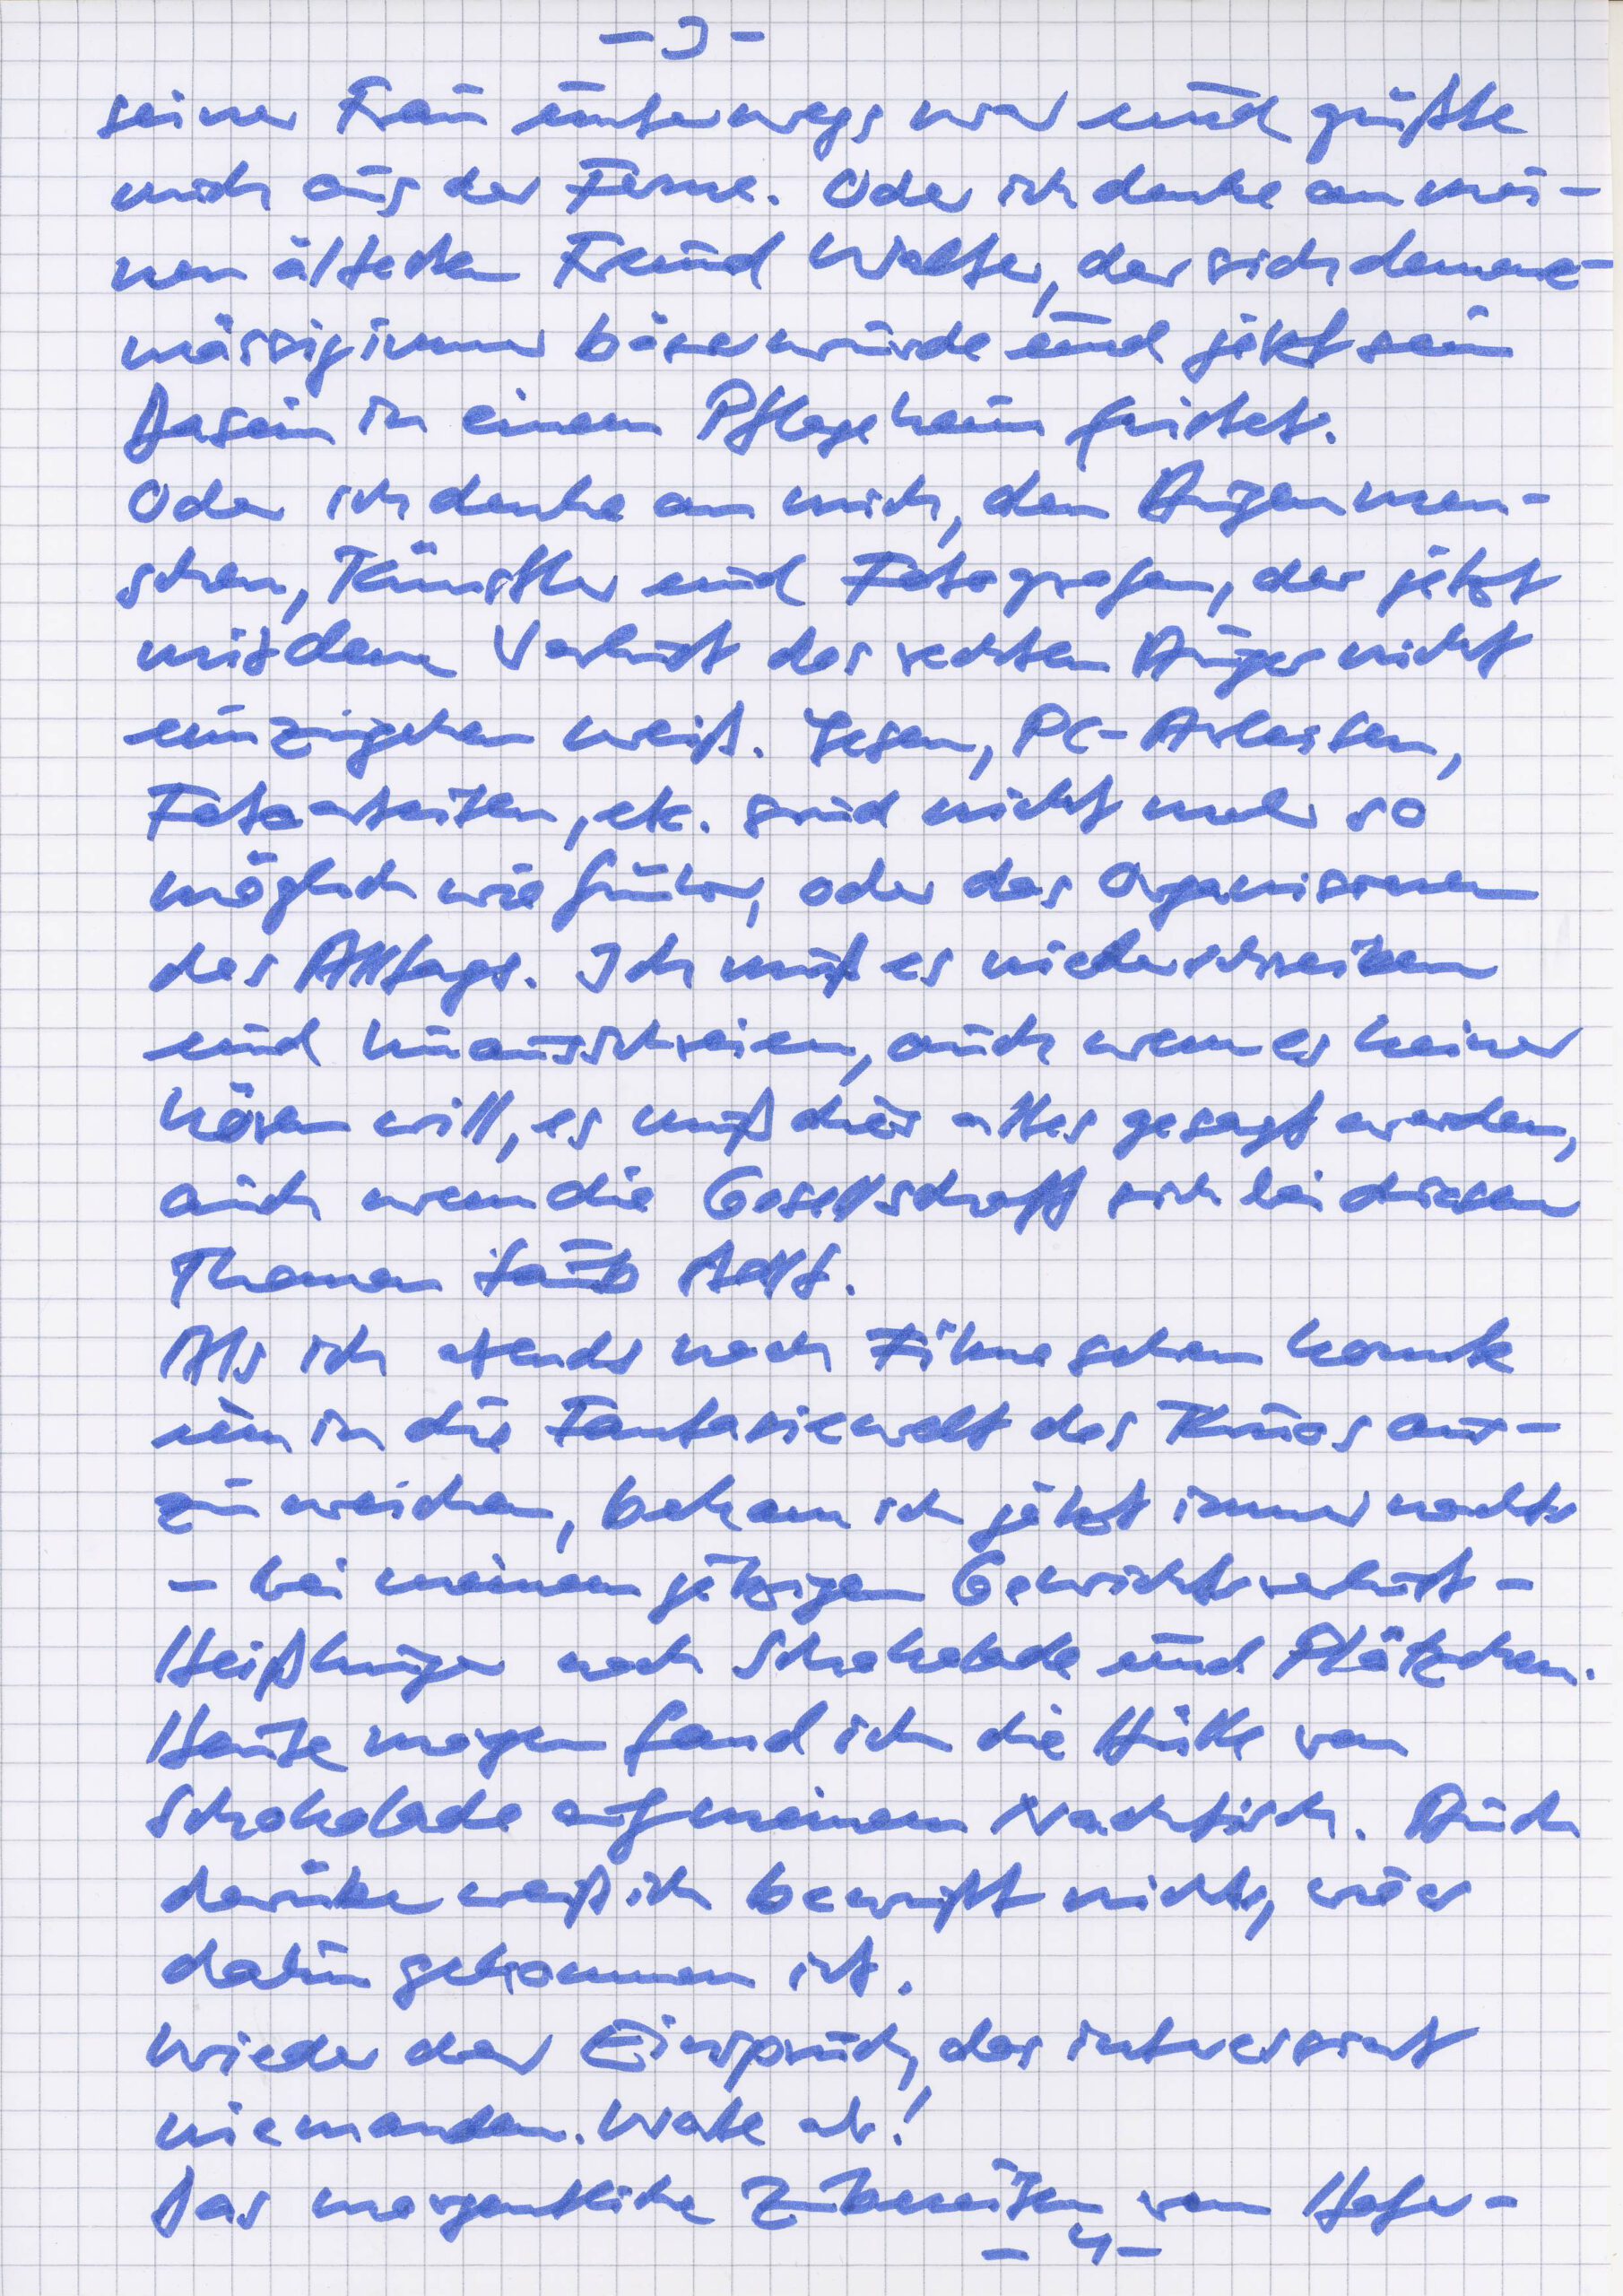 - 3 -
seiner Frau unterwegs war und grüßte
mich aus der Ferne. Oder ich denke an mei-
nen ältesten Freund Walter, der sich demenz-
mässig immer böser wurde und jetzt sein
Dasein in einem Pflegeheim fristet.
Oder ich denke an mich, den Augenmen-
schen, Künstler und Fotografen, der jetzt
mit dem Verlust des rechten Auges nicht
umzugehen weiß. Lesen, PC-Arbeiten,
Fotoarbeiten, etc. sind nicht mehr so
möglich wie früher, oder das Organisieren
des Alltags. Ich muß es niederschreiben
und hinausschreien, auch wenn es keiner
hören will, es muß dies alles gesagt werden,
auch wenn die Gesellschaft sich bei diesen
Themen taub stellt.
Als ich abends noch Filme sehen konnte
um in die Fantasiewelt des Kinos aus-
zuweichen, bekam ich jetzt immer nachts
- bei meinem jetzigen Gewichtsverlust -
Heißhunger nach Schokolade und Plätzchen.
Heute morgen fand ich die Hülle von
Schokolade auf meinem Nachttisch. Auch
darüber weiß ich bewußt nichts, wie es
dahin gekommen ist.
Wieder der Einspruch, das interessiert
niemanden. Warte ab!
Das morgentliche Zubereiten vom Hafer-
- 4 -